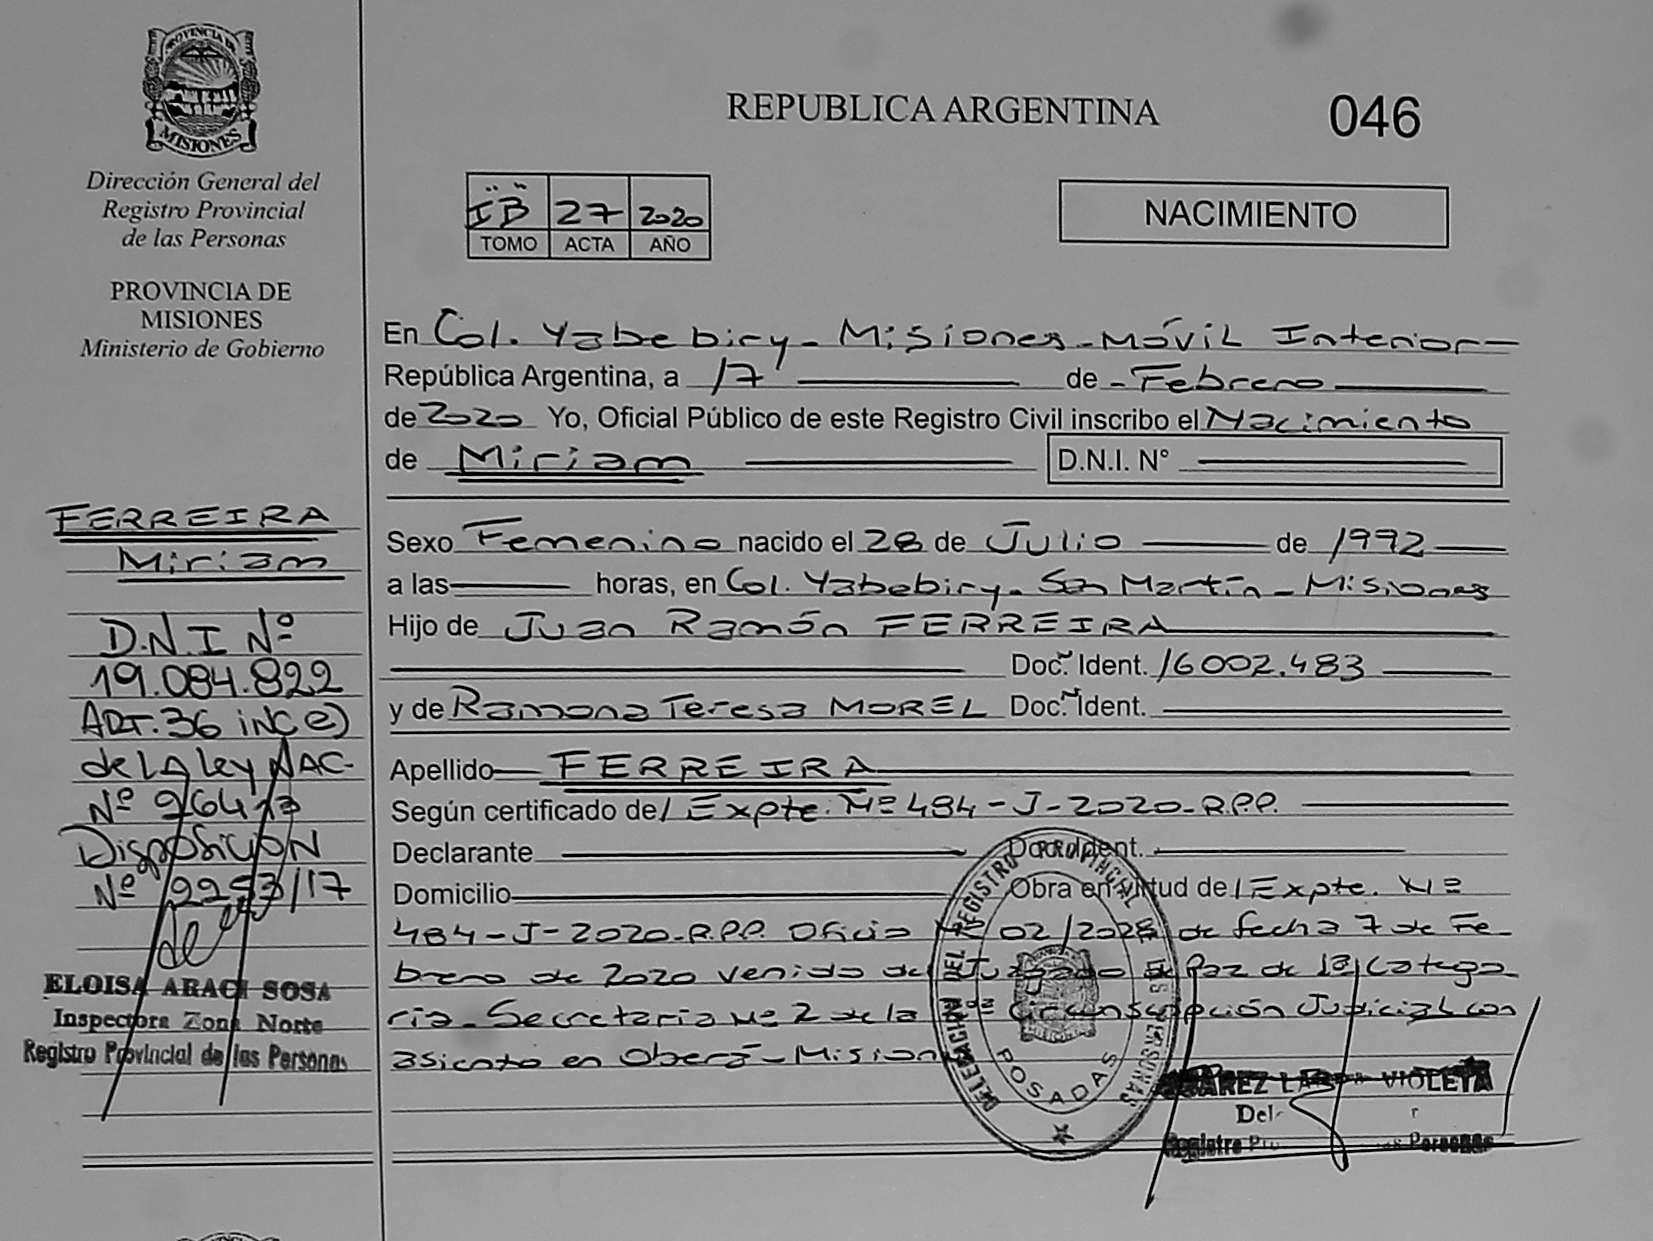 PROVINCIA DE
MISIONES
Dirección General del
Registro Provincial
de las Personas
PROVINCIA DE
MISIONES
Ministerio de Gobierno
FERREIRA
Miriam
D.N.I Nº
19.084.822
ART. 36 inc e)
de la ley NAC-
Nº 26413
Disposición
Nº 2253/17
ELOISA ARACI SOSA
Inspectora Zona Norte
Registro Provincial de las Personas
REPUBLICA ARGENTINA
046
IB 27 2020
TOMO ACTA AÑO
NACIMIENTO
En Col. Yabebiry - Misiones - Móvil Interior
República Argentina, a 17 de - Febrero
de 2020 Yo, Oficial Público de este Registro Civil inscribo el Nacimiento
de Miriam D.N.I. N°
Sexo Femenino nacido el 28 de Julio de 1992
a las horas, en Col. Yabebiry - San Martín - Misiones
Hijo de Juan Ramón FERREIRA
Doc. Ident. 16002.483
y de Ramona Teresa MOREL Doc. Ident.
Apellido FERREIRA
Según certificado de/ Expte. Nº 484-J-2020-R.P.P.
Declarante Doc. Ident.
Domicilio Obra en virtud de/ Expte. Nº
484-J-2020-R.P.P. Oficio Nº 02/2020 de fecha 7 de Fe-
brero de 2020 venido del Juzgado de Paz de 1ª Catego
ria - Secretaria Nº 2 de la Circunscripción Judicial con
asiento en Oberá - Mision
DELEGACION DEL REGISTRO PROVINCIAL DE LAS PERSONAS
POSADAS
VIOLETA
Del
Registro Personas